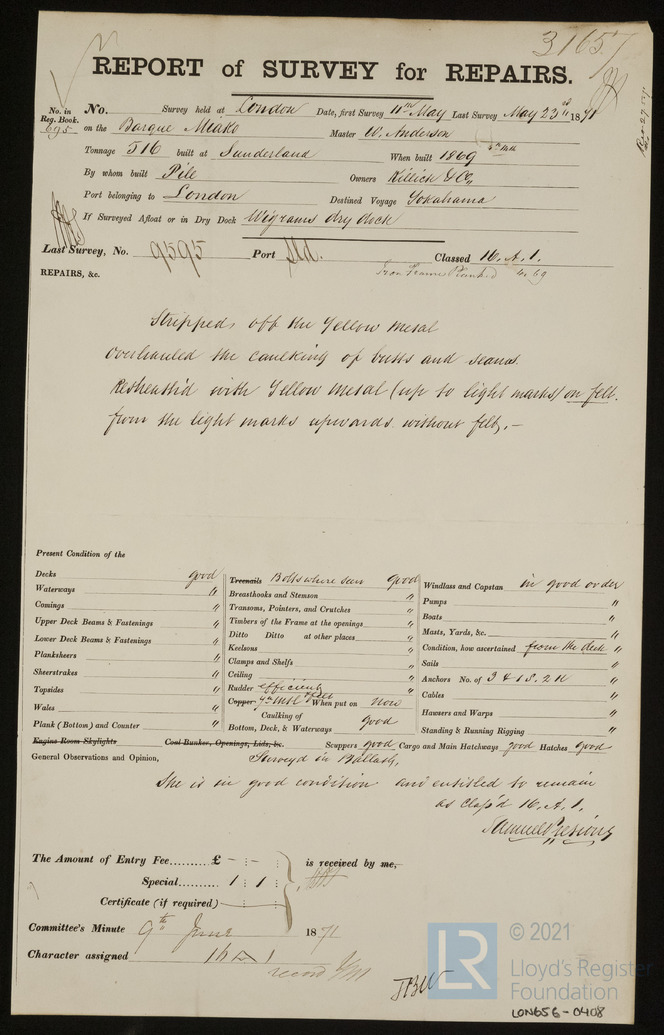 31657
REPORT of SURVEY for REPAIRS.
No. in Reg. Book. 695
No. Survey held at London Date, first Survey 11th May Last Survey May 23rd 1871
on the Barque Miako Master W. Anderson
Tonnage 516 built at Sunderland When built 1869 4th mth
By whom built Pile Owners Killick & Co,,
Port belonging to London Destined Voyage Yokahama
If Surveyed Afloat or in Dry Dock Wigrams dry dock
Last Survey, No. 9595 Port Sld. Classed 16. A. 1.
REPAIRS, &c. Iron Frame Planked 4. 69
Stripped, off the Yellow Metal
overhauled the caulking of butts and seams
Resheath'd with Yellow Metal (up to light marks) on felt.
from the light marks upwards without felt, —
Present Condition of the
Decks good
Waterways "
Comings "
Upper Deck Beams & Fastenings "
Lower Deck Beams & Fastenings "
Planksheers "
Sheerstrakes "
Topsides "
Wales "
Plank (Bottom) and Counter "
Engine Room Skylights
Treenails Bolts where seen good
Breasthooks and Stemson "
Transoms, Pointers, and Crutches "
Timbers of the Frame at the openings "
Ditto Ditto at other places "
Keelsons "
Clamps and Shelfs "
Ceiling "
Rudder efficient "
Copper Y. Metl Felt When put on now
Caulking of
Bottom, Deck, & Waterways good
Coal Bunker, Openings, Lids, &c.
Windlass and Capstan in good order
Pumps "
Boats "
Masts, Yards, &c. "
Condition, how ascertained from the deck "
Sails "
Anchors No. of 3 & 1 S. 2 K "
Cables "
Hawsers and Warps "
Standing & Running Rigging "
Scuppers good Cargo and Main Hatchways good Hatches good
General Observations and Opinion, Survey'd in Ballast,
She is in good condition and entitled to remain
as Class'd 16. A. 1.
Samuel Presious
The Amount of Entry Fee £ - : - : is received by me,
Special 1 : 1 :
Certificate (if required) - : :
Committee's Minute 9th June 1871
Character assigned 16 A 1
record
JBW
© 2021
LR
Lloyd's Register
Foundation
LON656-0408